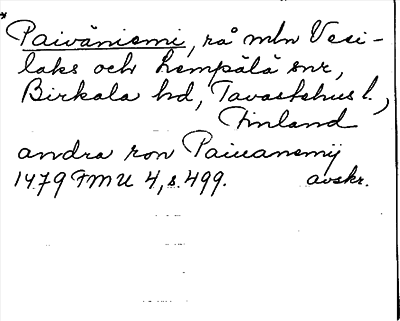 *Paiväniemi, rå mln Vesi-
laks och Lempälä snr,
Birkala hd, Tavastehus l.,
Finland
andra ron Paiuanemÿ
1479 FMU 4, s. 499. avskr.